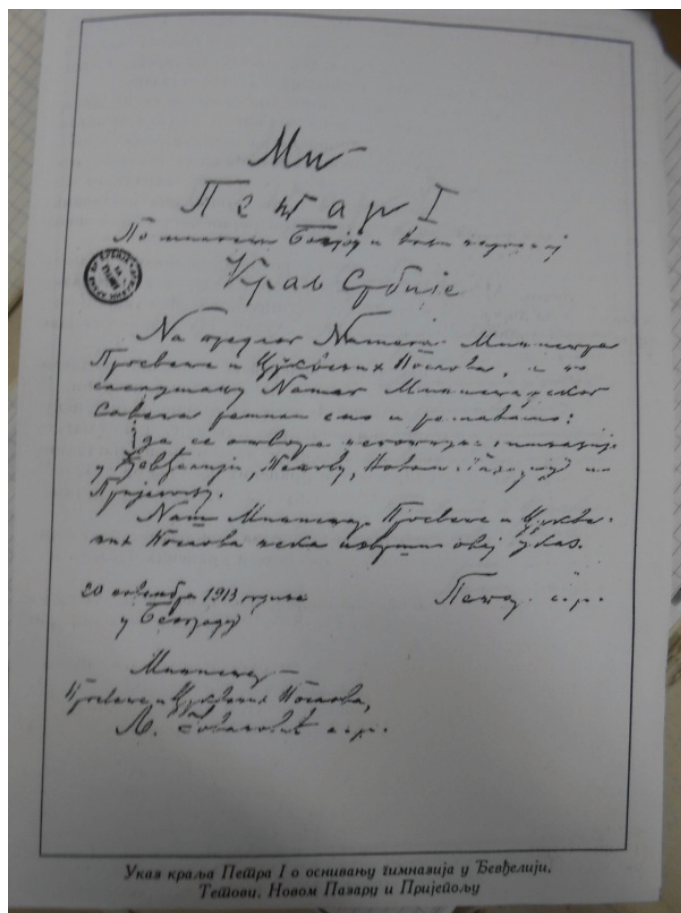 Ми
Петар I
По милости Божјој и вољи народној
Краљ Србије
На предлог Нашега Министра
Просвете и Црквених Послова, а по
саслушању Нашег Министарског
Савета решили смо и решавамо:
да се отворе гимназије
у Ђевђелији, Тетову, Новом Пазару и
Пријепољу.
Наш Министар Просвете и Цркве-
них Послова нека изврши овај указ.
20 1913 године
у Београду
Петар с.р.
Министар
Просвете и Црквених Послова,
Љ. Јовановић с.р.
Указ краља Петра I о оснивању гимназија у Ђевђелији,
Тетови, Новом Пазару и Пријепољу